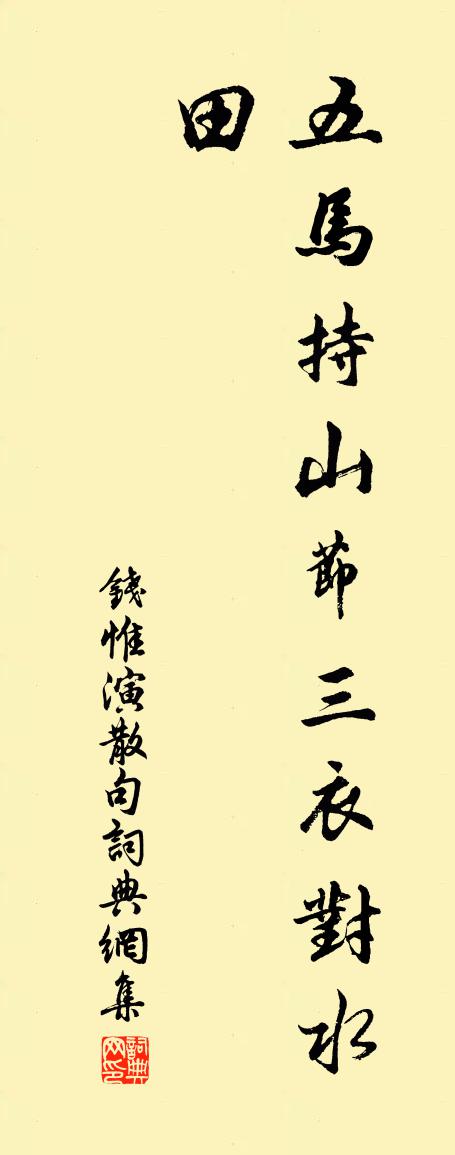 五馬持山節三衣對水
田
錢惟演散句詞典網集
詞典
网印